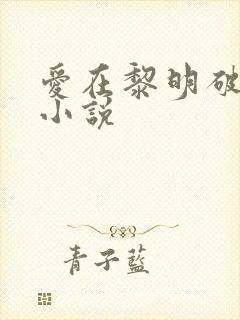 愛在黎明破
小說
青子藍